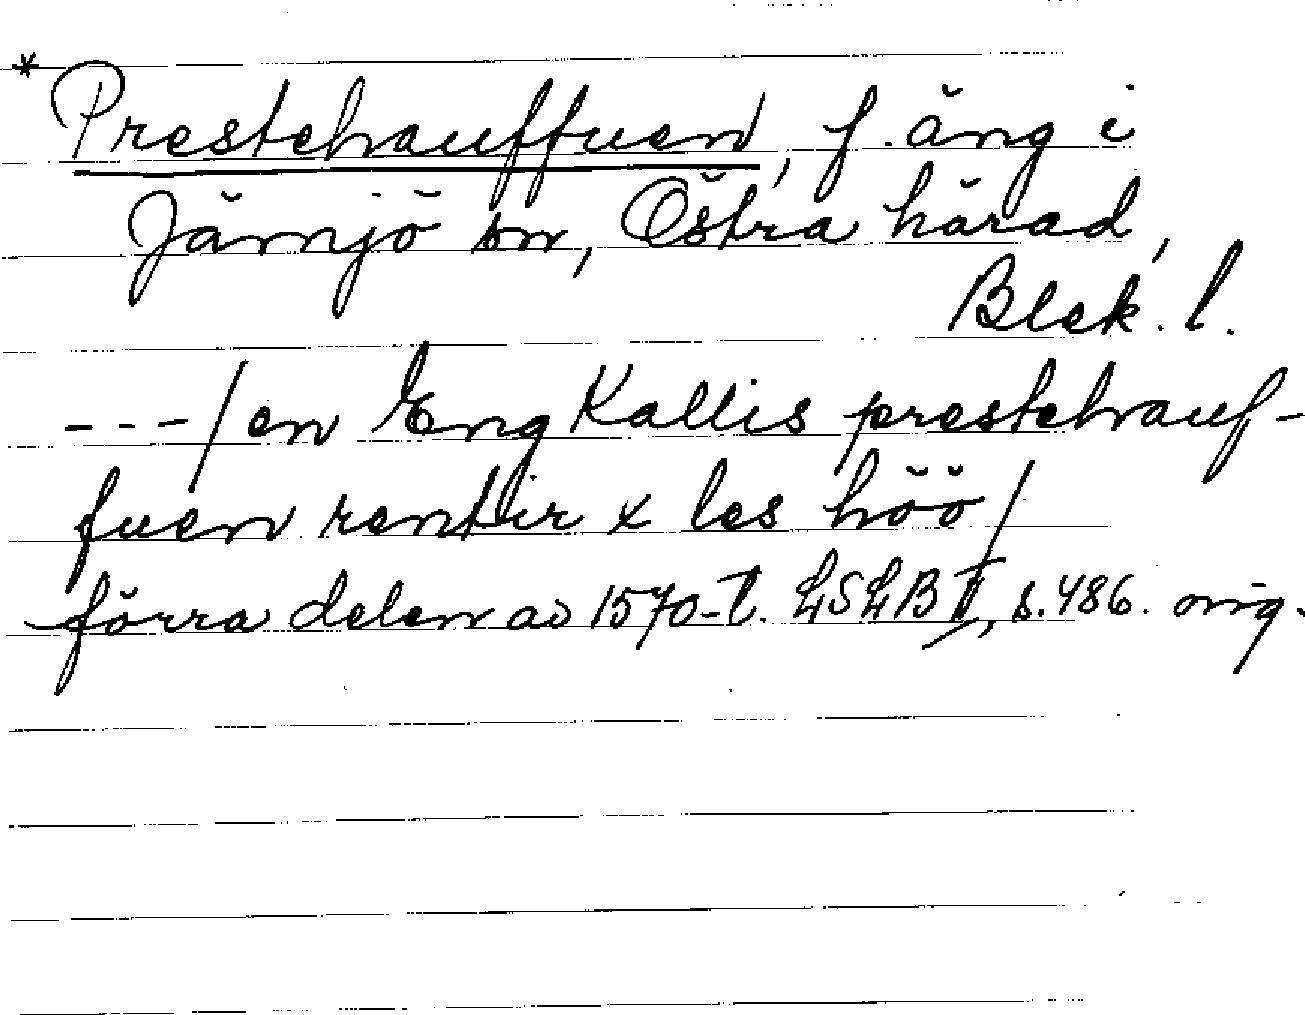 * Prestehauffuen, f. äng i
Jämjö sn, Östra härad,
Blek. l.
---/en Eng Kallis prestehauf-
fuen rentir x les höö/
förra delen av 1570-t. LSLB II, s. 486. orig.